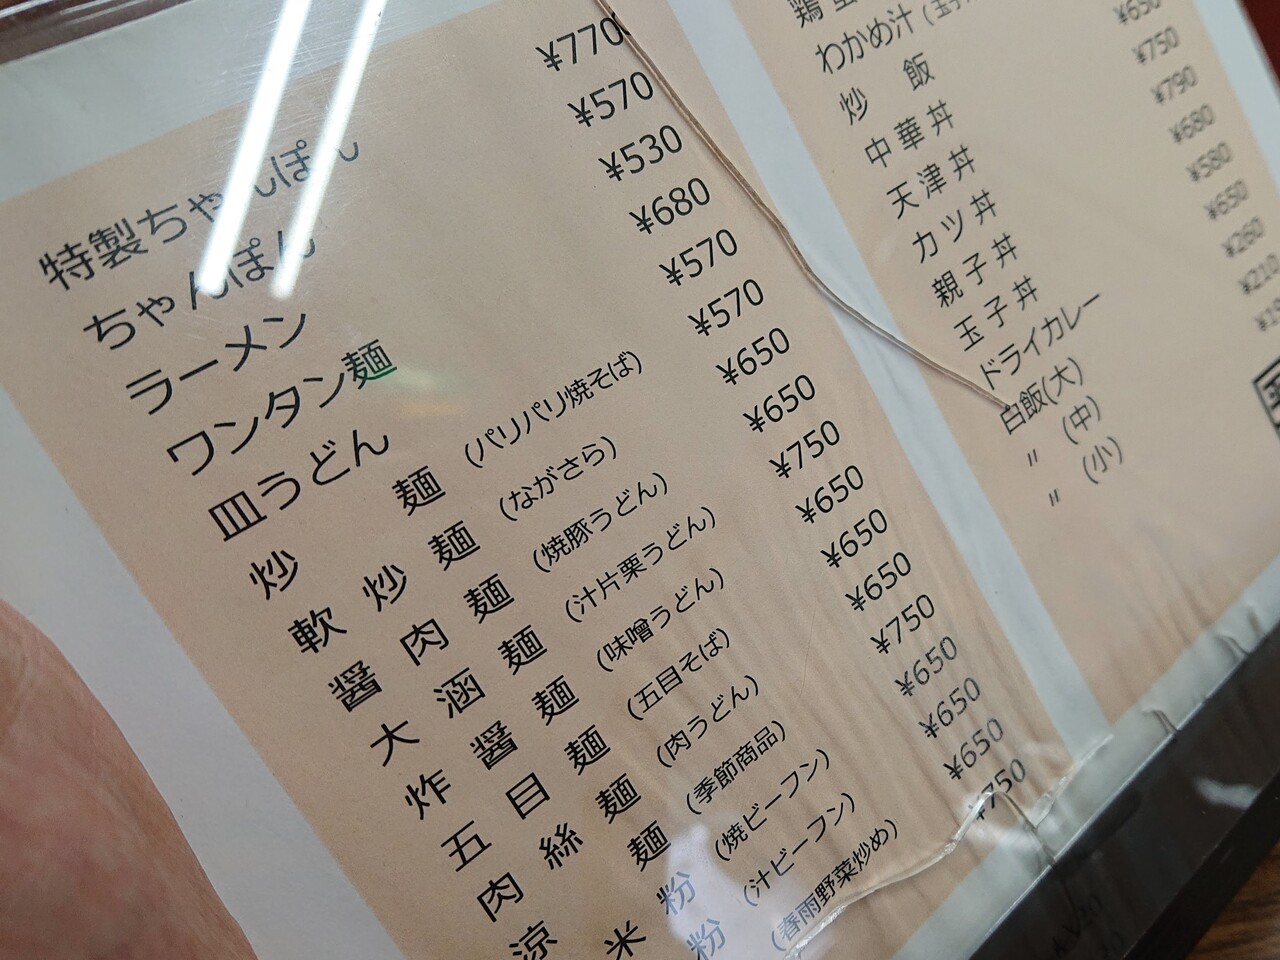 特製ちゃんぽん ¥770
ちゃんぽん ¥570
ラーメン ¥530
ワンタン麺 ¥680
皿うどん ¥570
炒麺 (パリパリ焼そば) ¥570
軟炒麺 (ながさら) ¥650
醤肉麺 (焼豚うどん) ¥650
大涵麺 (汁片栗うどん) ¥750
炸醤麺 (味噌うどん) ¥650
五目麺 (五目そば) ¥650
肉絲麺 (肉うどん) ¥650
涼麺 (季節商品) ¥750
米粉 (焼ビーフン) ¥650
粉 (汁ビーフン) ¥650
(春雨野菜炒め) ¥650
¥750
鶏
わかめ汁(玉子
炒飯
中華丼 ¥650
天津丼 ¥750
カツ丼 ¥790
親子丼 ¥680
玉子丼 ¥580
ドライカレー ¥650
白飯(大) ¥260
〃 (中) ¥210
〃 (小)